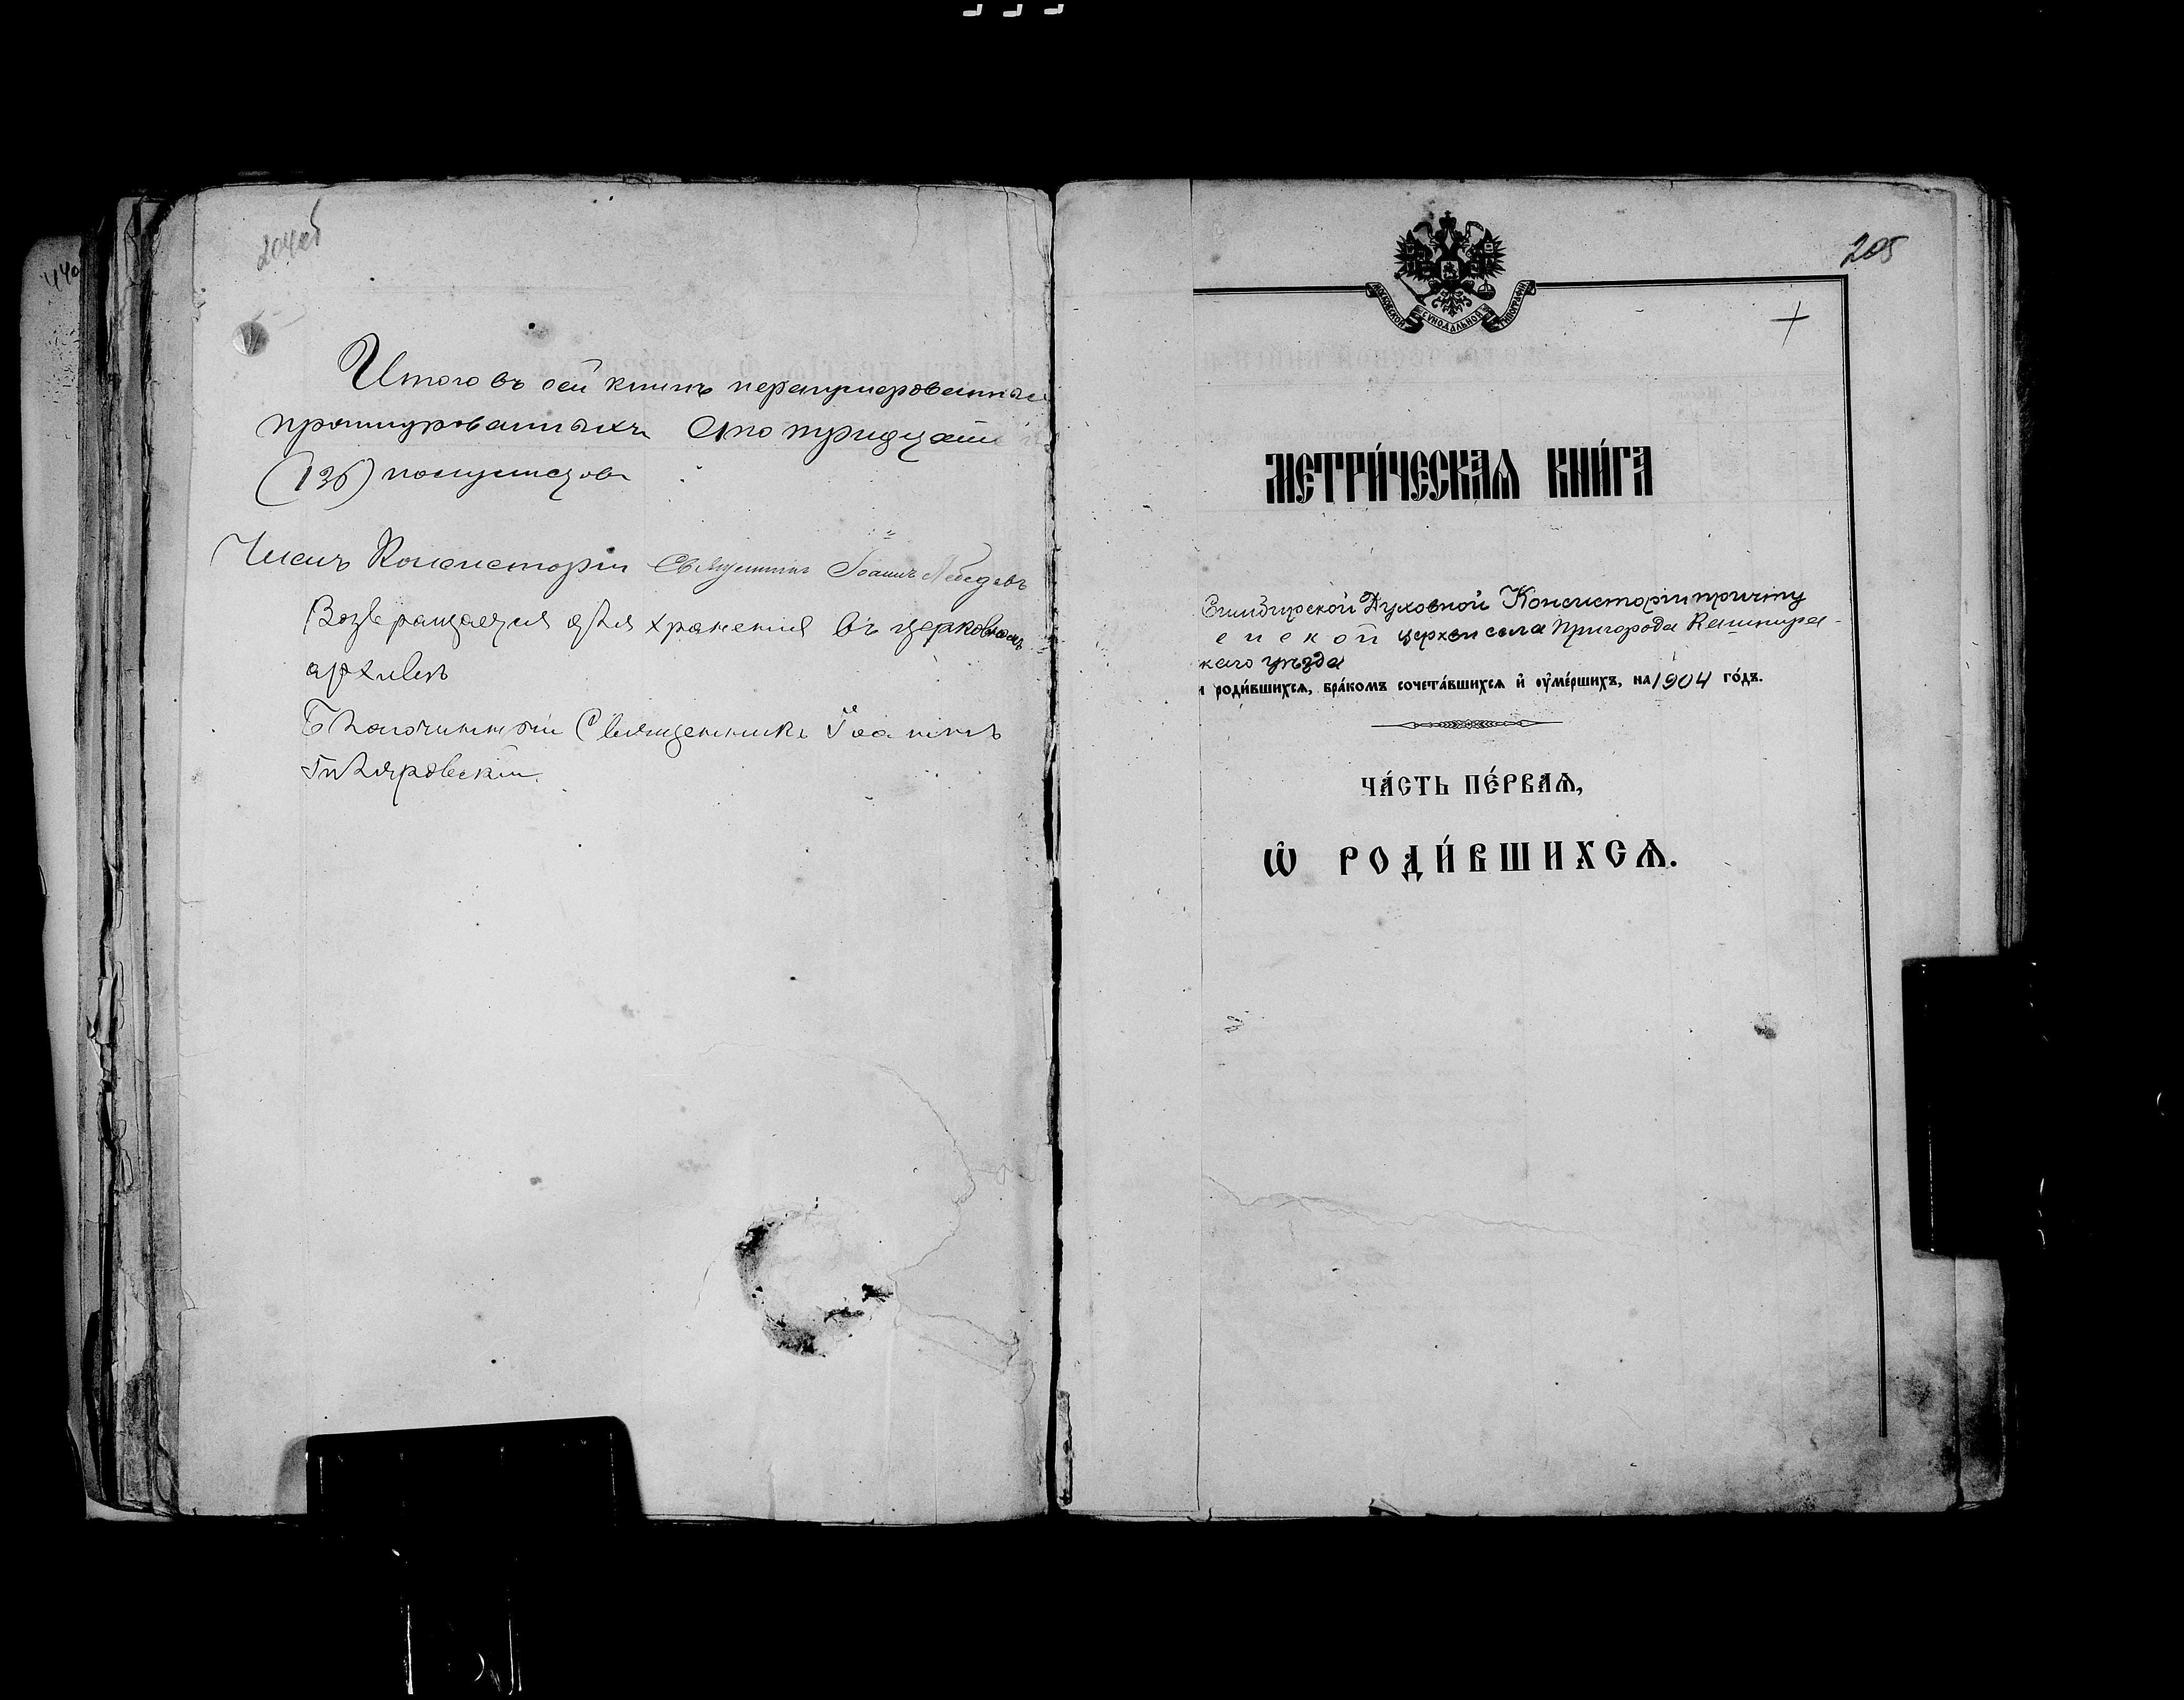 204об
Итого въ сей книгѣ перенумерованныхъ
прошнурованныхъ Сто тридцать
(136) полулистовъ
Членъ Консисторіи Священникъ Іоаннъ Лебедевъ
Возвращается для храненія въ церковномъ
архивѣ
Благочинный Священникъ Іоаннъ
Гнѣдровскій.
205
МОСКОВСКОЙ СѴНОДАЛЬНОЙ ТИПОГРАФІИ
МЕТРИ́ЧЕСКАѦ КНИ́ГА
Симбирской Духовной Консисторіи причту
енской церкви села Пригорода Кашпира-
каго уѣзда
роди́вшихсѧ, бра́комъ сочета́вшихсѧ и҆ ᲂу҆ме́ршихъ, на 1904 го́дъ.
ЧА́СТЬ ПЕ́РВАѦ,
Ѡ҆ РОДИ́ВШИХСѦ.